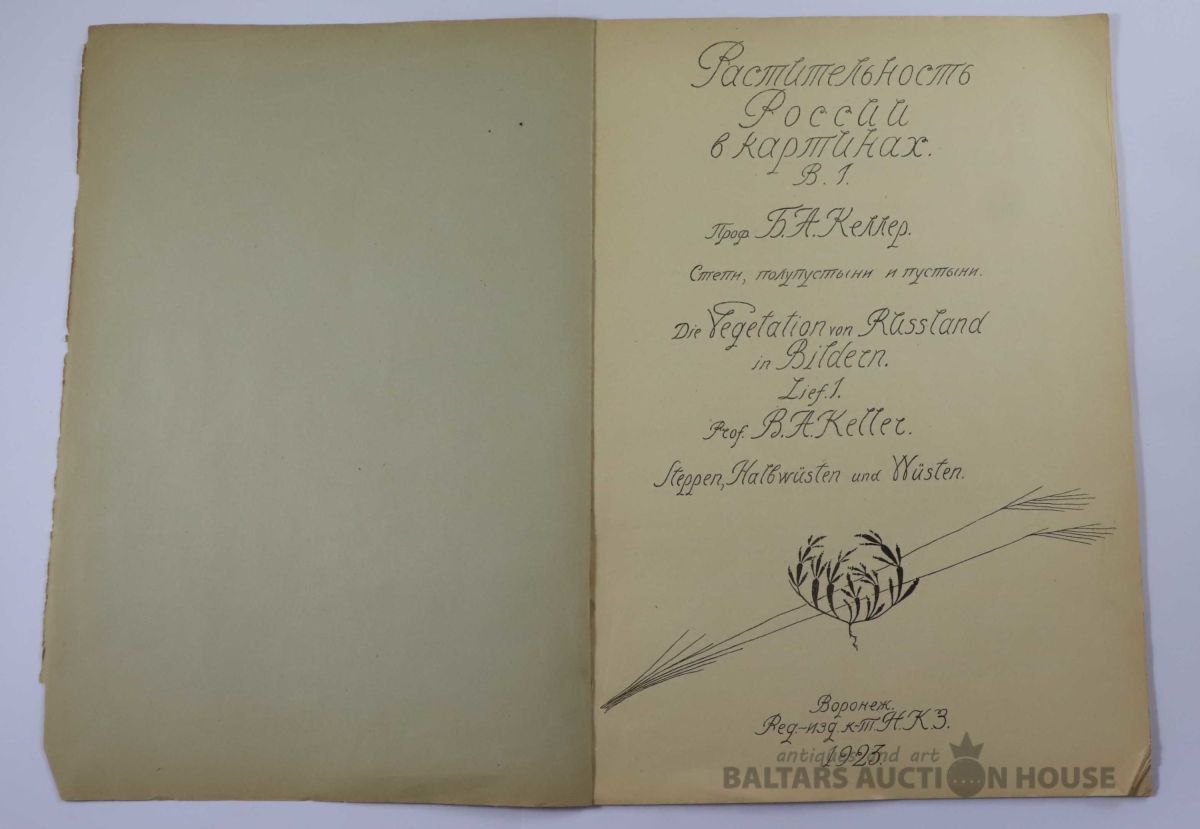 Растительность
России
в картинах.
В. 1.
Проф. Б. А. Келлер.
Степи, полупустыни и пустыни.
Die Vegetation von Russland
in Bildern.
Lief. 1.
Prof. B. A. Keller.
Steppen, Halbwüsten und Wüsten.
Воронеж.
Ред.-изд. к-т Н. К. З.
1923.
antiques and art
BALTARS AUCTION HOUSE